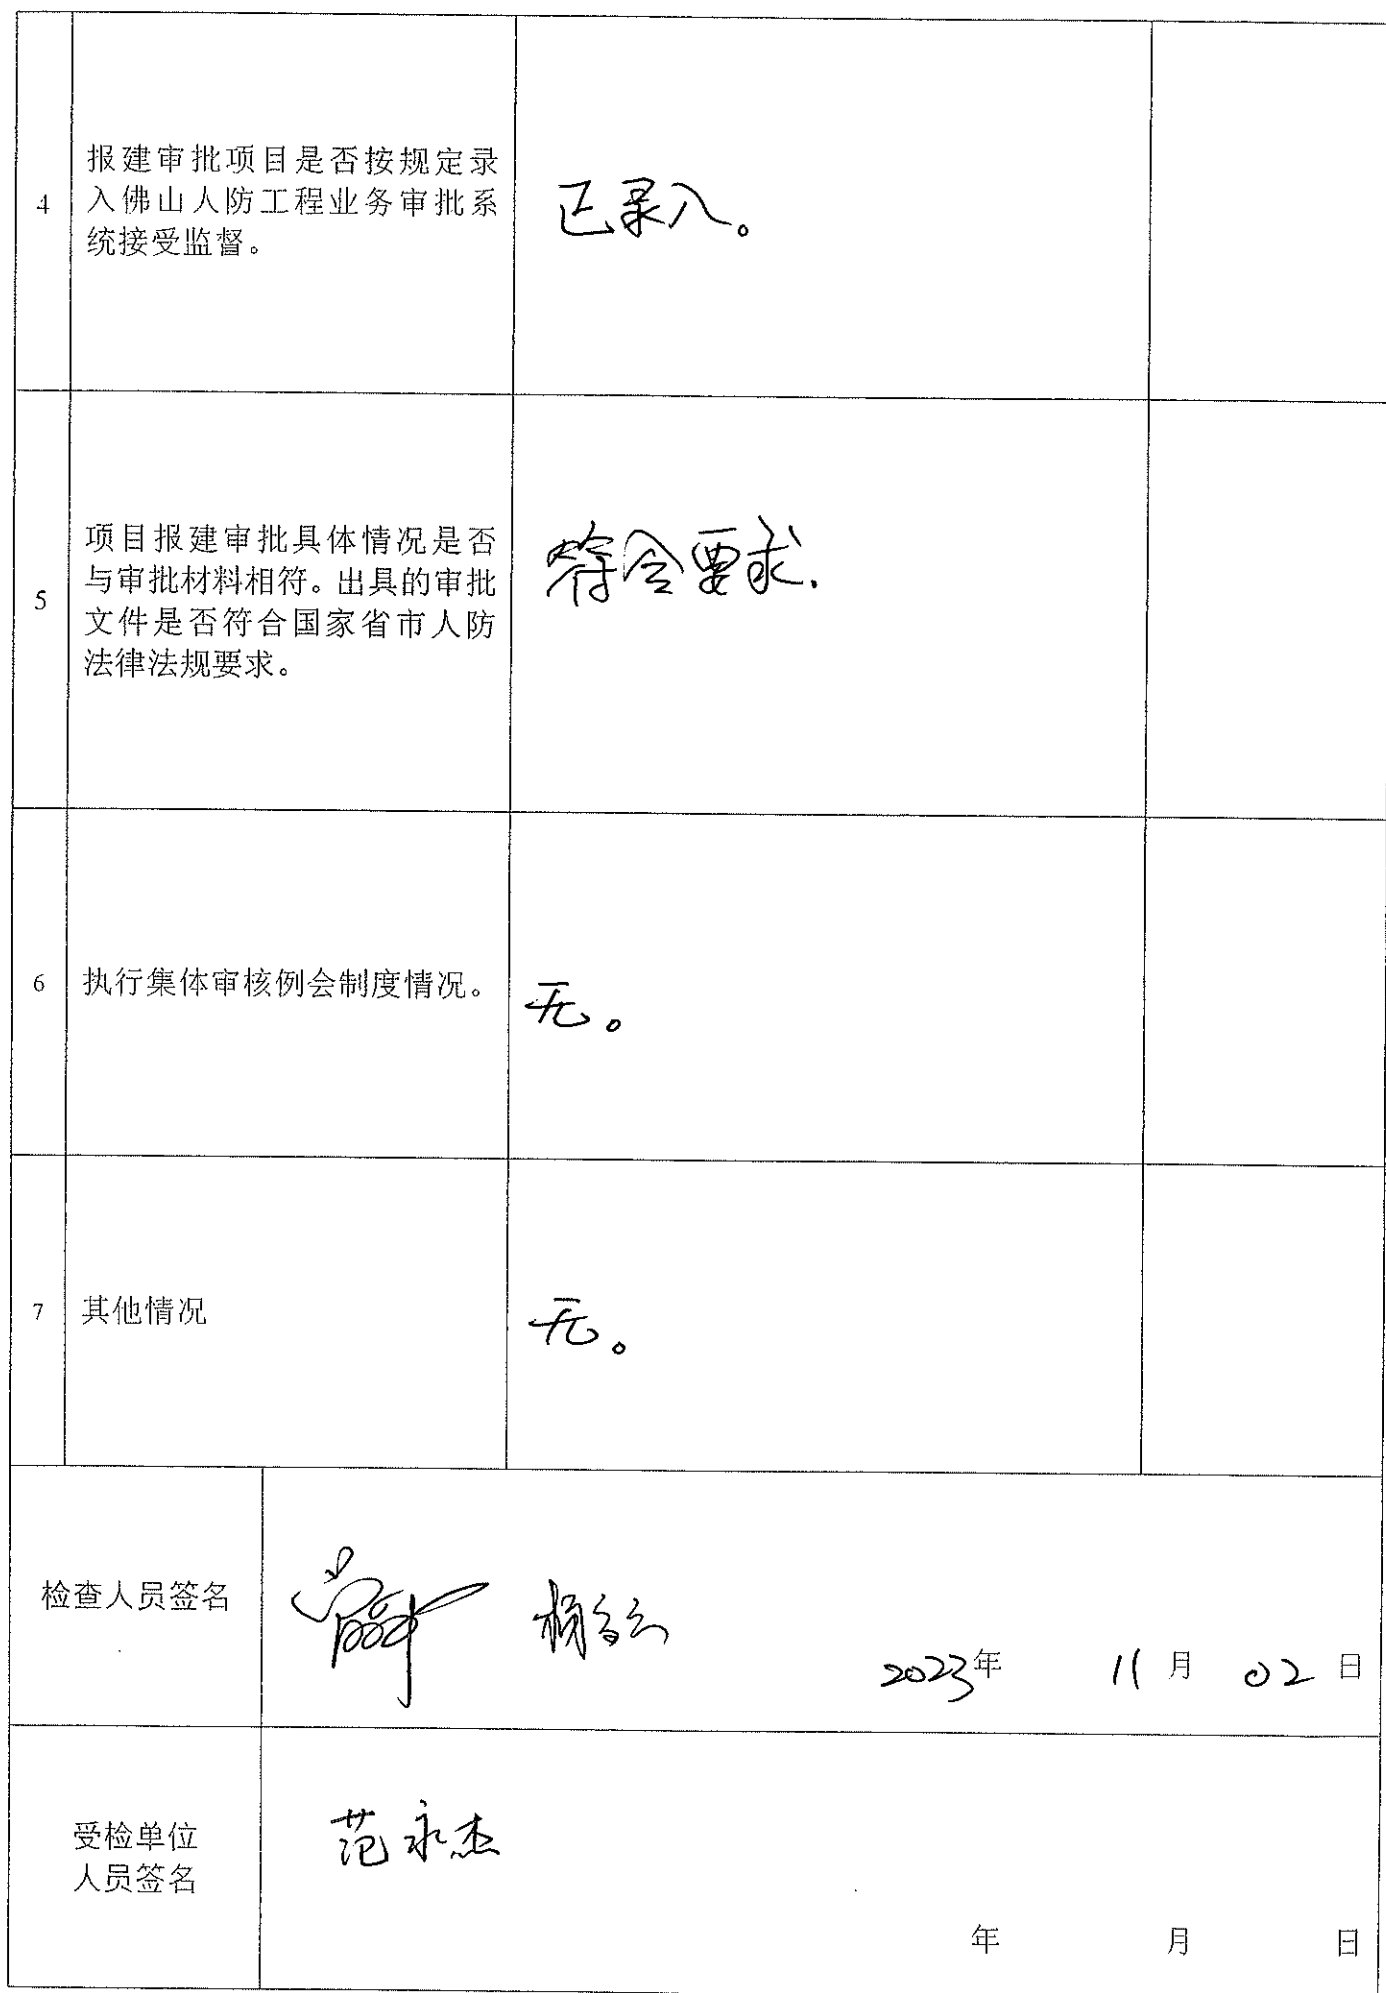 4
报建审批项目是否按规定录
入佛山人防工程业务审批系
统接受监督。
已录入。
5
项目报建审批具体情况是否
与审批材料相符。出具的审批
文件是否符合国家省市人防
法律法规要求。
符合要求.
6
执行集体审核例会制度情况。
无。
7
其他情况
无。
检查人员签名
2023年 11月 02日
受检单位
人员签名
范永杰
年 月 日